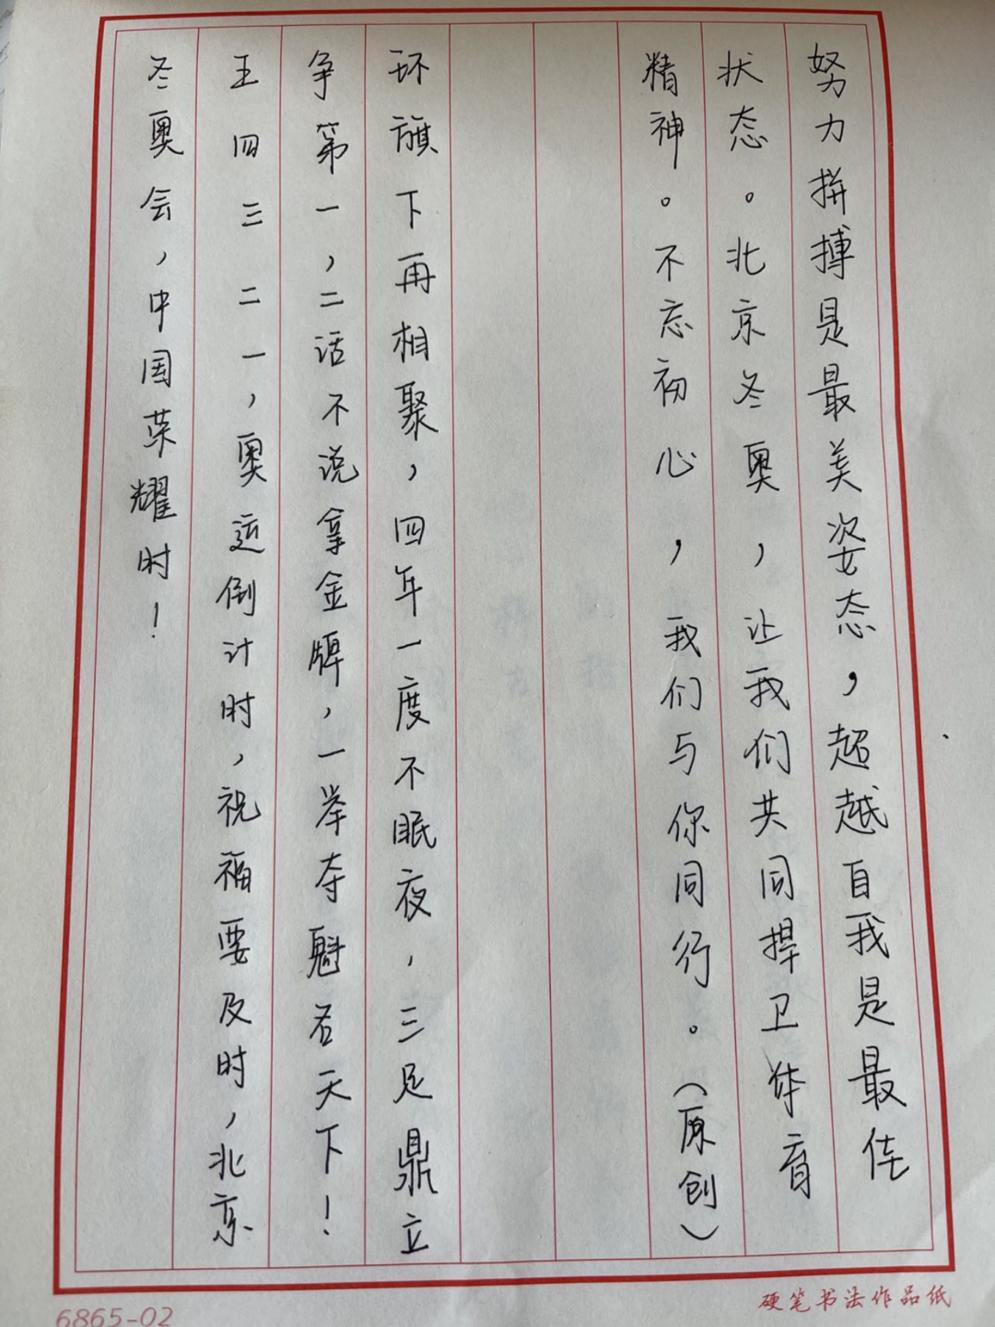 努力拼搏是最美姿态，超越自我是最佳
状态。北京冬奥，让我们共同捍卫体育
精神。不忘初心，我们与你同行。（原创）
环旗下再相聚，四年一度不眠夜，三足鼎立
争第一，二话不说拿金牌，一举夺魁名天下！
王四三二一，奥运倒计时，祝福要及时，北京
冬奥会，中国荣耀时！
6865-02
硬笔书法作品纸